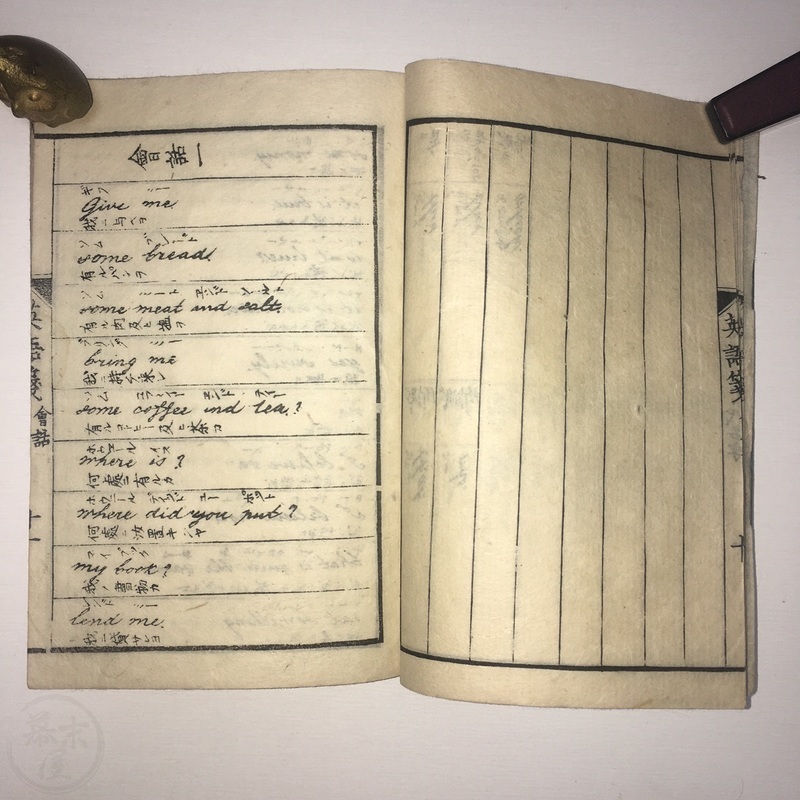 會話一
ギフ ミー
Give me
我ニ与ヘヨ
ソム ブレード
some bread.
有ルパンヲ
ソム ミート エンド ソールト
some meat and salt.
有ル肉及ヒ塩ヲ
ブリング ミー
bring me
我ニ持チ来レ
ソム コッフィー エンド テイー
some coffee and tea.?
有ルコーヒー及ヒ茶ヲ
ホエール イス
where is?
何處ニ有ルカ
ホウール ヂッド ユー ポット
where did you put?
何處ニ汝置キシヤ
マイ ブック
my book?
我ノ書物カ
レンド ミー
lend me.
我ニ貸サレヨ
英語箋 會話
十一
英語箋
十